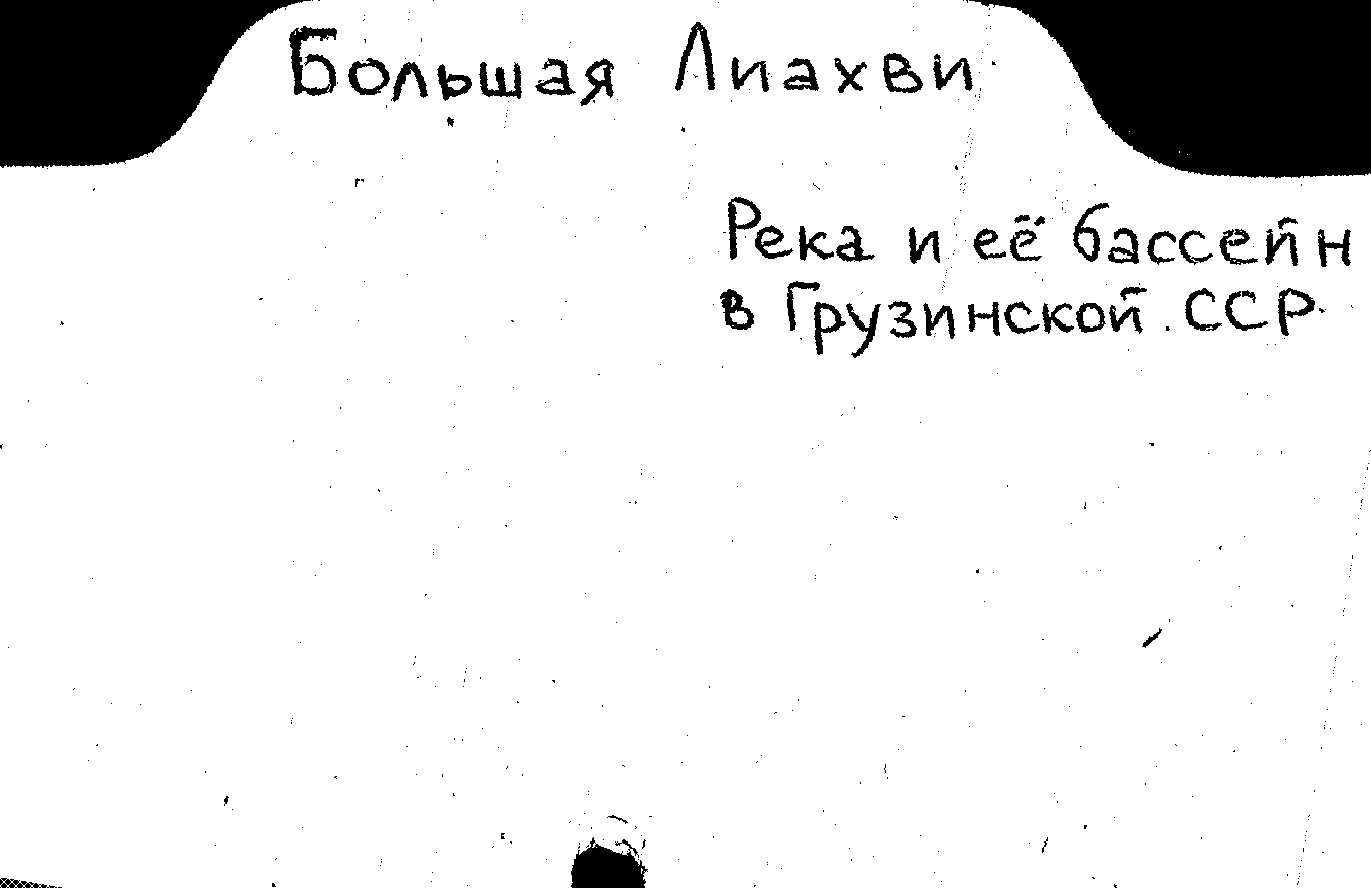 Большая Лиахви
Река и её бассейн
в Грузинской ССР.